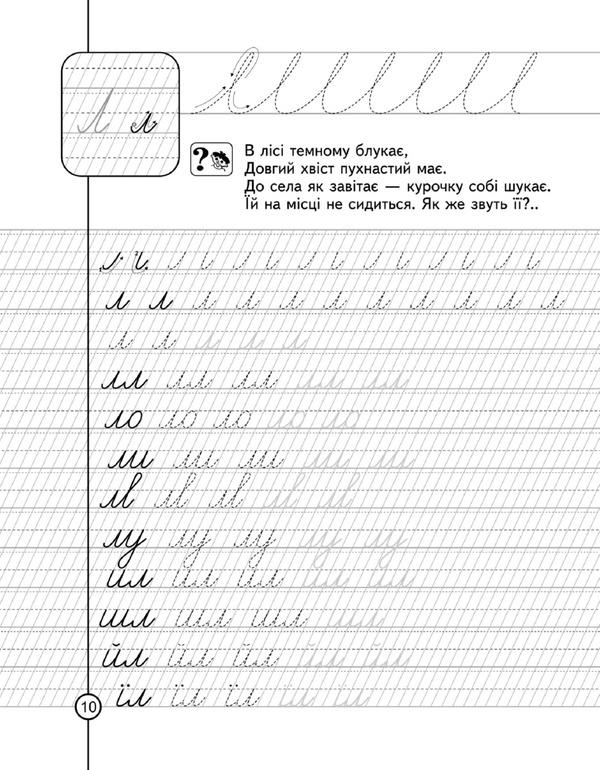 Л л
В лісі темному блукає,
Довгий хвіст пухнастий має.
До села як завітає — курочку собі шукає.
Їй на місці не сидиться. Як же звуть її?..
л л л л л л л л л л л
л л л л л
лл лл лл лл лл
ло ло ло ло ло
ли ли ли ли ли
лв лв лв лв лв
лу лу лу лу лу
ил ил ил ил ил
шл шл шл шл
йл йл йл йл йл
їл їл їл їл їл
10